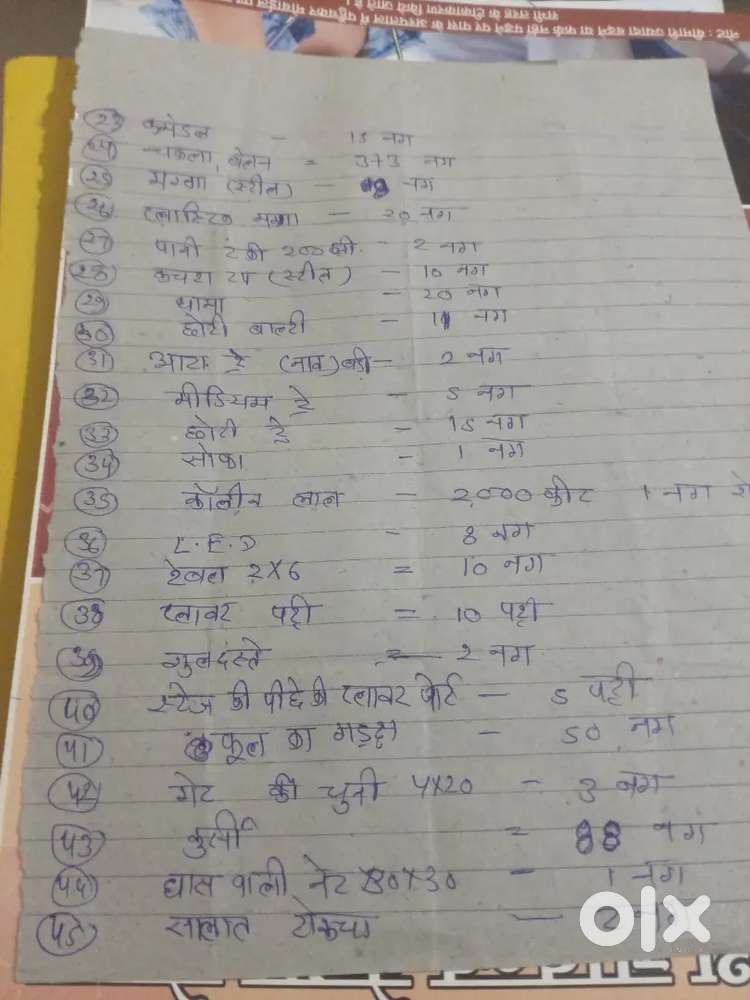 नोट : बीमारी ज्यादा बढ़ने या फर्क नहीं पड़ने पर पास के अस्पताल में पहुँचकर
सभी तरह के टीकाकरण किये जाते है।
23 कमंडल - 15 नग
24 चकला, बेलन = 3+3 नग
25 मग्गा (स्टील) - नग
26 प्लास्टिक मग्गा - 20 नग
27 पानी टंकी 200 ली. - 2 नग
28 कचरा टप (स्टील) - 10 नग
29 धामा - 20 नग
30 छोटी बाल्टी - 11 नग
31 आटा ट्रे (नाव) बड़ी - 2 नग
32 मीडियम ट्रे - 5 नग
33 छोटी ट्रे - 15 नग
34 सोफा - 1 नग
35 कॉलीन लाल - 2000 फीट 1 नग
36 L.E.D - 8 नग
37 टेबल 2x6 = 10 नग
38 फ्लावर पट्टी = 10 पट्टी
39 गुलदस्ते = 2 नग
40 स्टेज की पीछे की फ्लावर - 5 पट्टी
41 फूल का - 50 नग
42 गेट की चुनी 4x20 - 3 नग
43 कुर्सी = 88 नग
44 घास वाली नेट 30x30 - 1 नग
45 सालात - 2 नग
olx